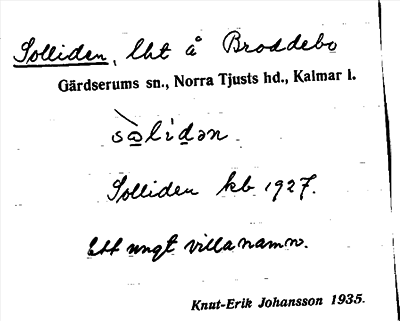 Solliden, lht å Broddebo
Gärdserums sn., Norra Tjusts hd., Kalmar l.
sòlidən.
Solliden kb 1927.
Ett ungt villanamn.
Knut-Erik Johansson 1935.